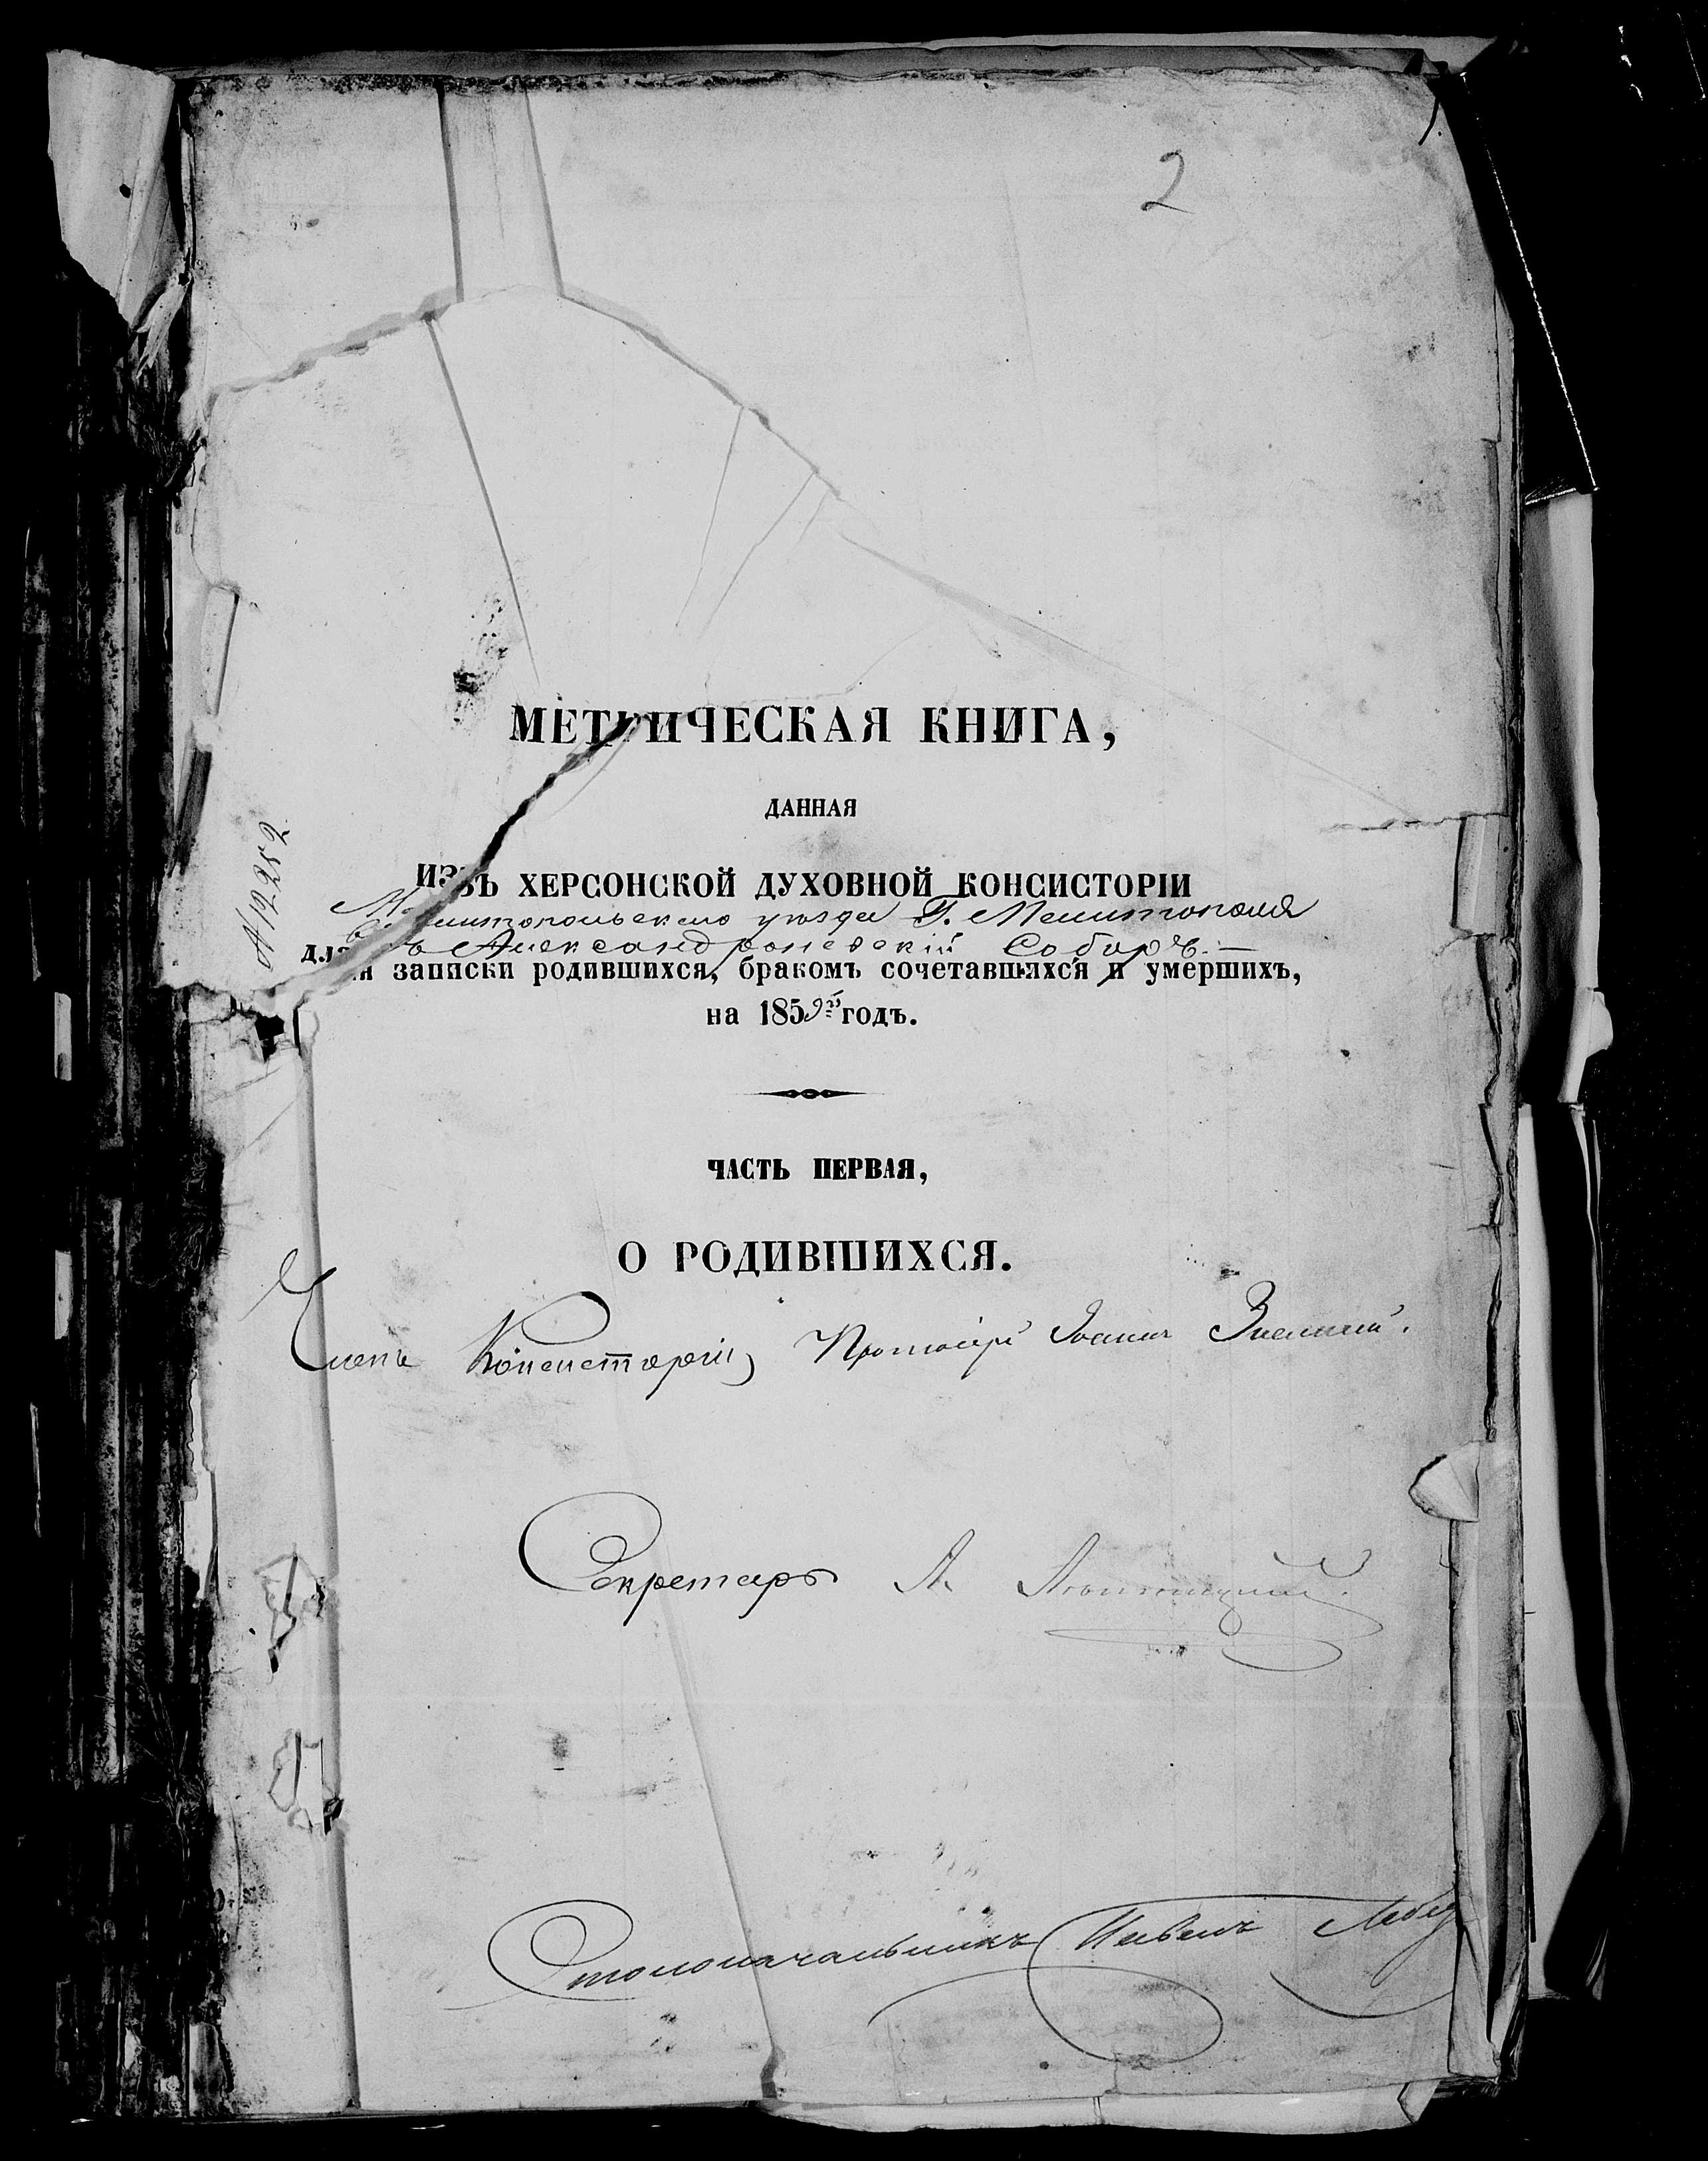 2
МЕТРИЧЕСКАЯ КНИГА,
ДАННАЯ
ИЗЪ ХЕРСОНСКОЙ ДУХОВНОЙ КОНСИСТОРІИ
Мелитопольскаго уѣзда Г. Мелитополя
въ Александроневскій Соборъ.—
для записки родившихся, бракомъ сочетавшихся и умершихъ,
на 1859й годъ.
ЧАСТЬ ПЕРВАЯ,
О РОДИВШИХСЯ.
Членъ Консисторіи, Протоіерей Іоаннъ
Секретарь Л.
Столоначальникъ Павелъ
№12252